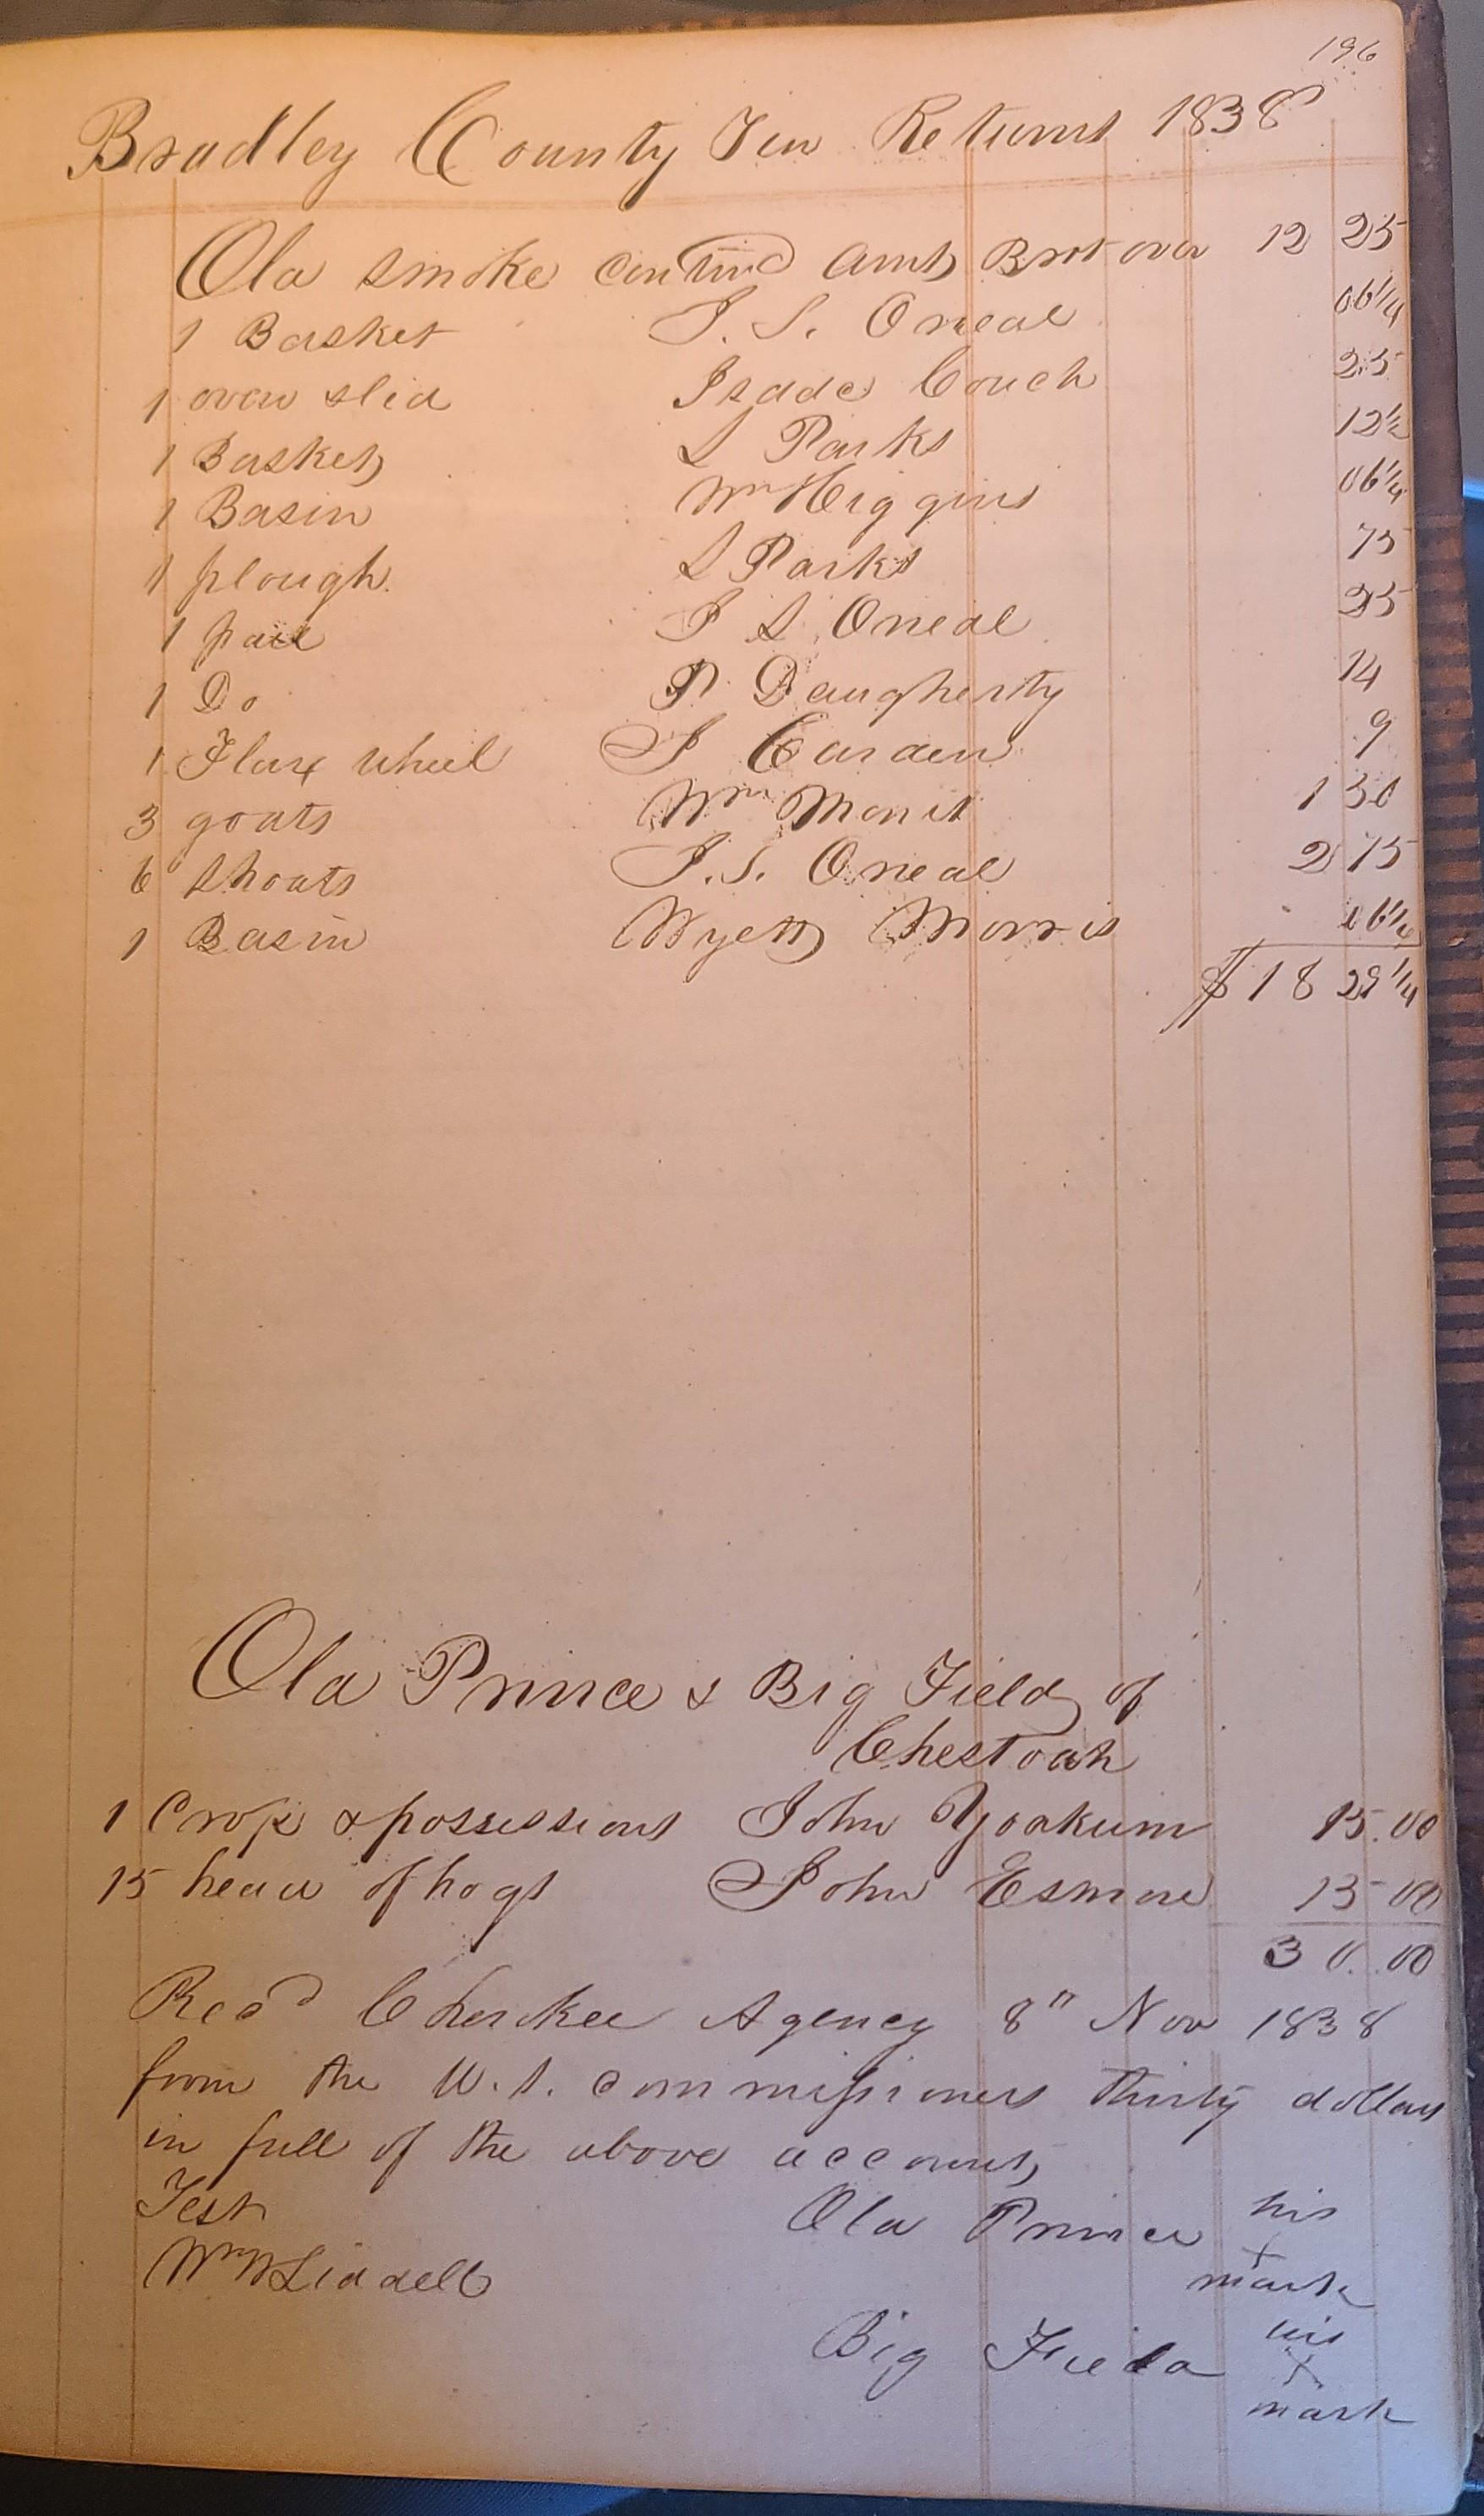 196
Bradley County Ten Returns 1838
Old Smoke Contind Amt Brot over 12 25
1 Basket J. S. Oneal 06 1/4
1 oven & lid Isaac Couch 25
1 Basket L Parks 12 1/2
1 Basin Wm Higgins 06 1/4
1 plough L Parks 75
1 pail J S Oneal 25
1 Do P Daugherty 14
1 Flax Wheel J Carden 9
3 goats Wm 1 30
6 Shoats J. S. Oneal 2 75
1 Basin Wyett Morris 06 1/4
$18 29 1/4
Old Prince & Big Field of
Chestoah
1 Crop & possessions John Yoakum 15.00
15 head of hogs John 15 00
30.00
Recd Cherokee Agency 8" Nov 1838
from the U. S. commissioners thirty dollars
in full of the above account
Test Old Prince his
Wm N Liddell x
mark
Big Field his
x
mark